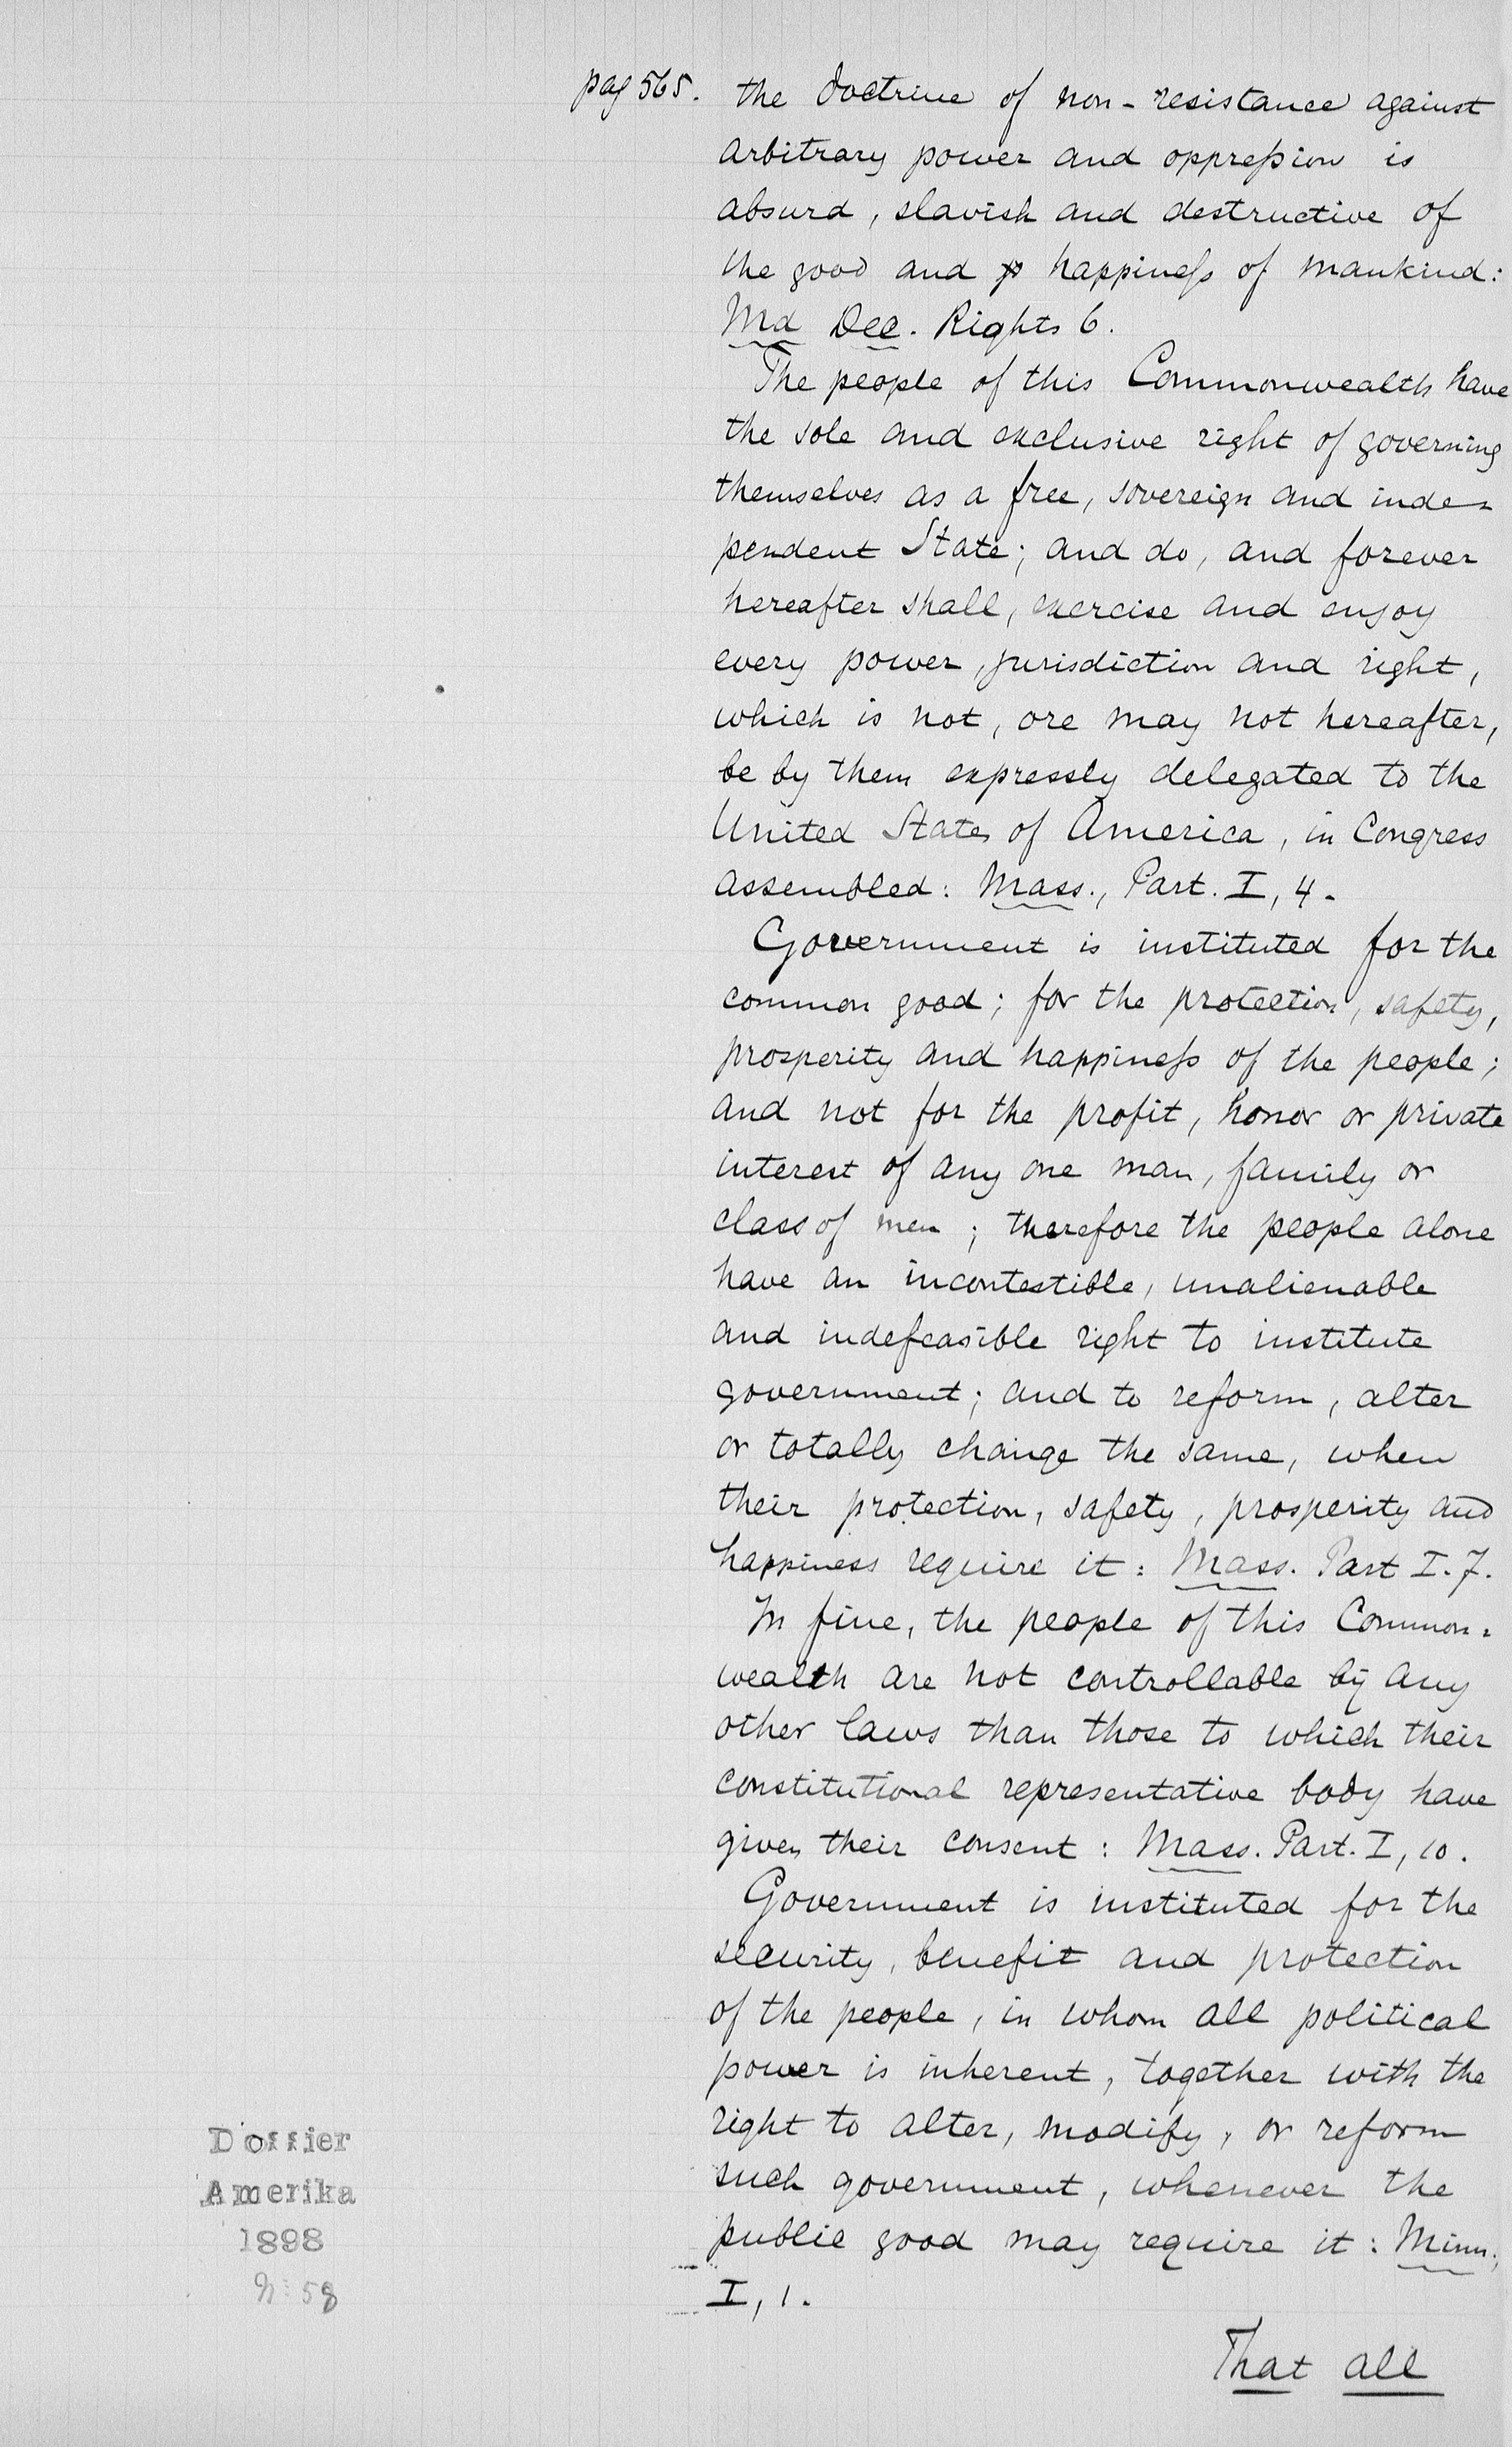 pag 565. the doctrine of non-resistance against
arbitrary power and oppression is
absurd, slavish and destructive of
the good and happiness of mankind:
Md Dec. Rights 6.
The people of this Commonwealth have
the sole and exclusive right of governing
themselves as a free, sovereign and inde=
pendent State; and do, and forever
hereafter shall, exercise and enjoy
every power, jurisdiction and right,
which is not, ore may not hereafter,
be by them expressly delegated to the
United States of America, in Congress
assembled: Mass., Part. I, 4.
Government is instituted for the
common good; for the protection, safety,
prosperity and happiness of the people;
and not for the profit, honor or private
interest of any one man, family or
class of men; therefore the people alone
have an incontestible, unalienable
and indefeasible right to institute
government; and to reform, alter
or totally change the same, when
their protection, safety, prosperity and
happiness require it: Mass. Part I. 7.
In fine, the people of this Common=
wealth are not controllable by any
other laws than those to which their
constitutional representative body have
given their consent: Mass. Part. I, 10.
Government is instituted for the
security, benefit and protection
of the people, in whom all political
power is inherent, together with the
right to alter, modify, or reform
such government, whenever the
public good may require it: Minn.
I, 1.
That all
Doffier
Amerika
1898
58